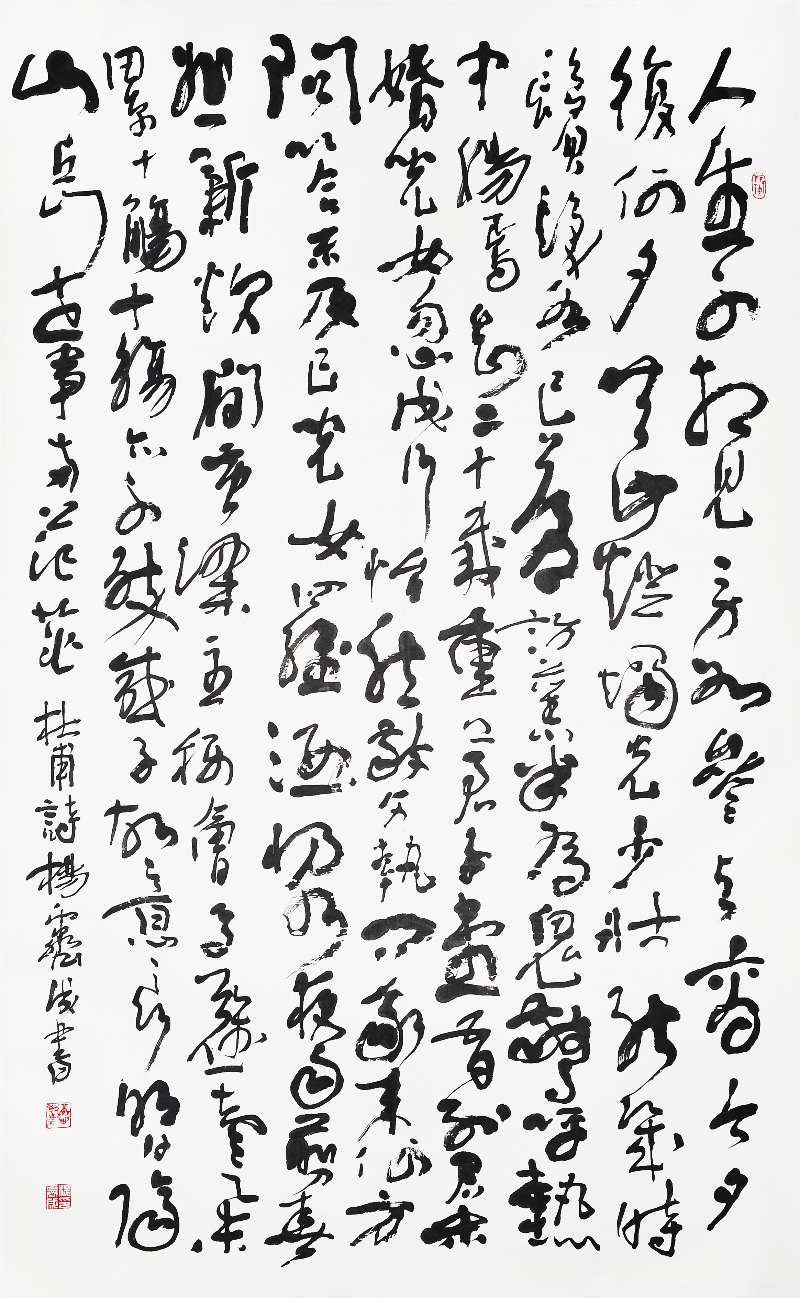 人生不相見動如參與商今夕
復何夕共此燈燭光少壯能幾時
鬢髮各已蒼訪舊半為鬼驚呼熱
中腸焉知二十載重上君子堂昔別君未
婚兒女忽成行怡然敬父執問我來何方
問答未及已兒女羅酒漿夜雨剪春
韭新炊間黃粱主稱會面難一舉
累十觴十觴亦不醉感子故意長明日隔
山岳世事兩茫茫 杜甫詩楊書